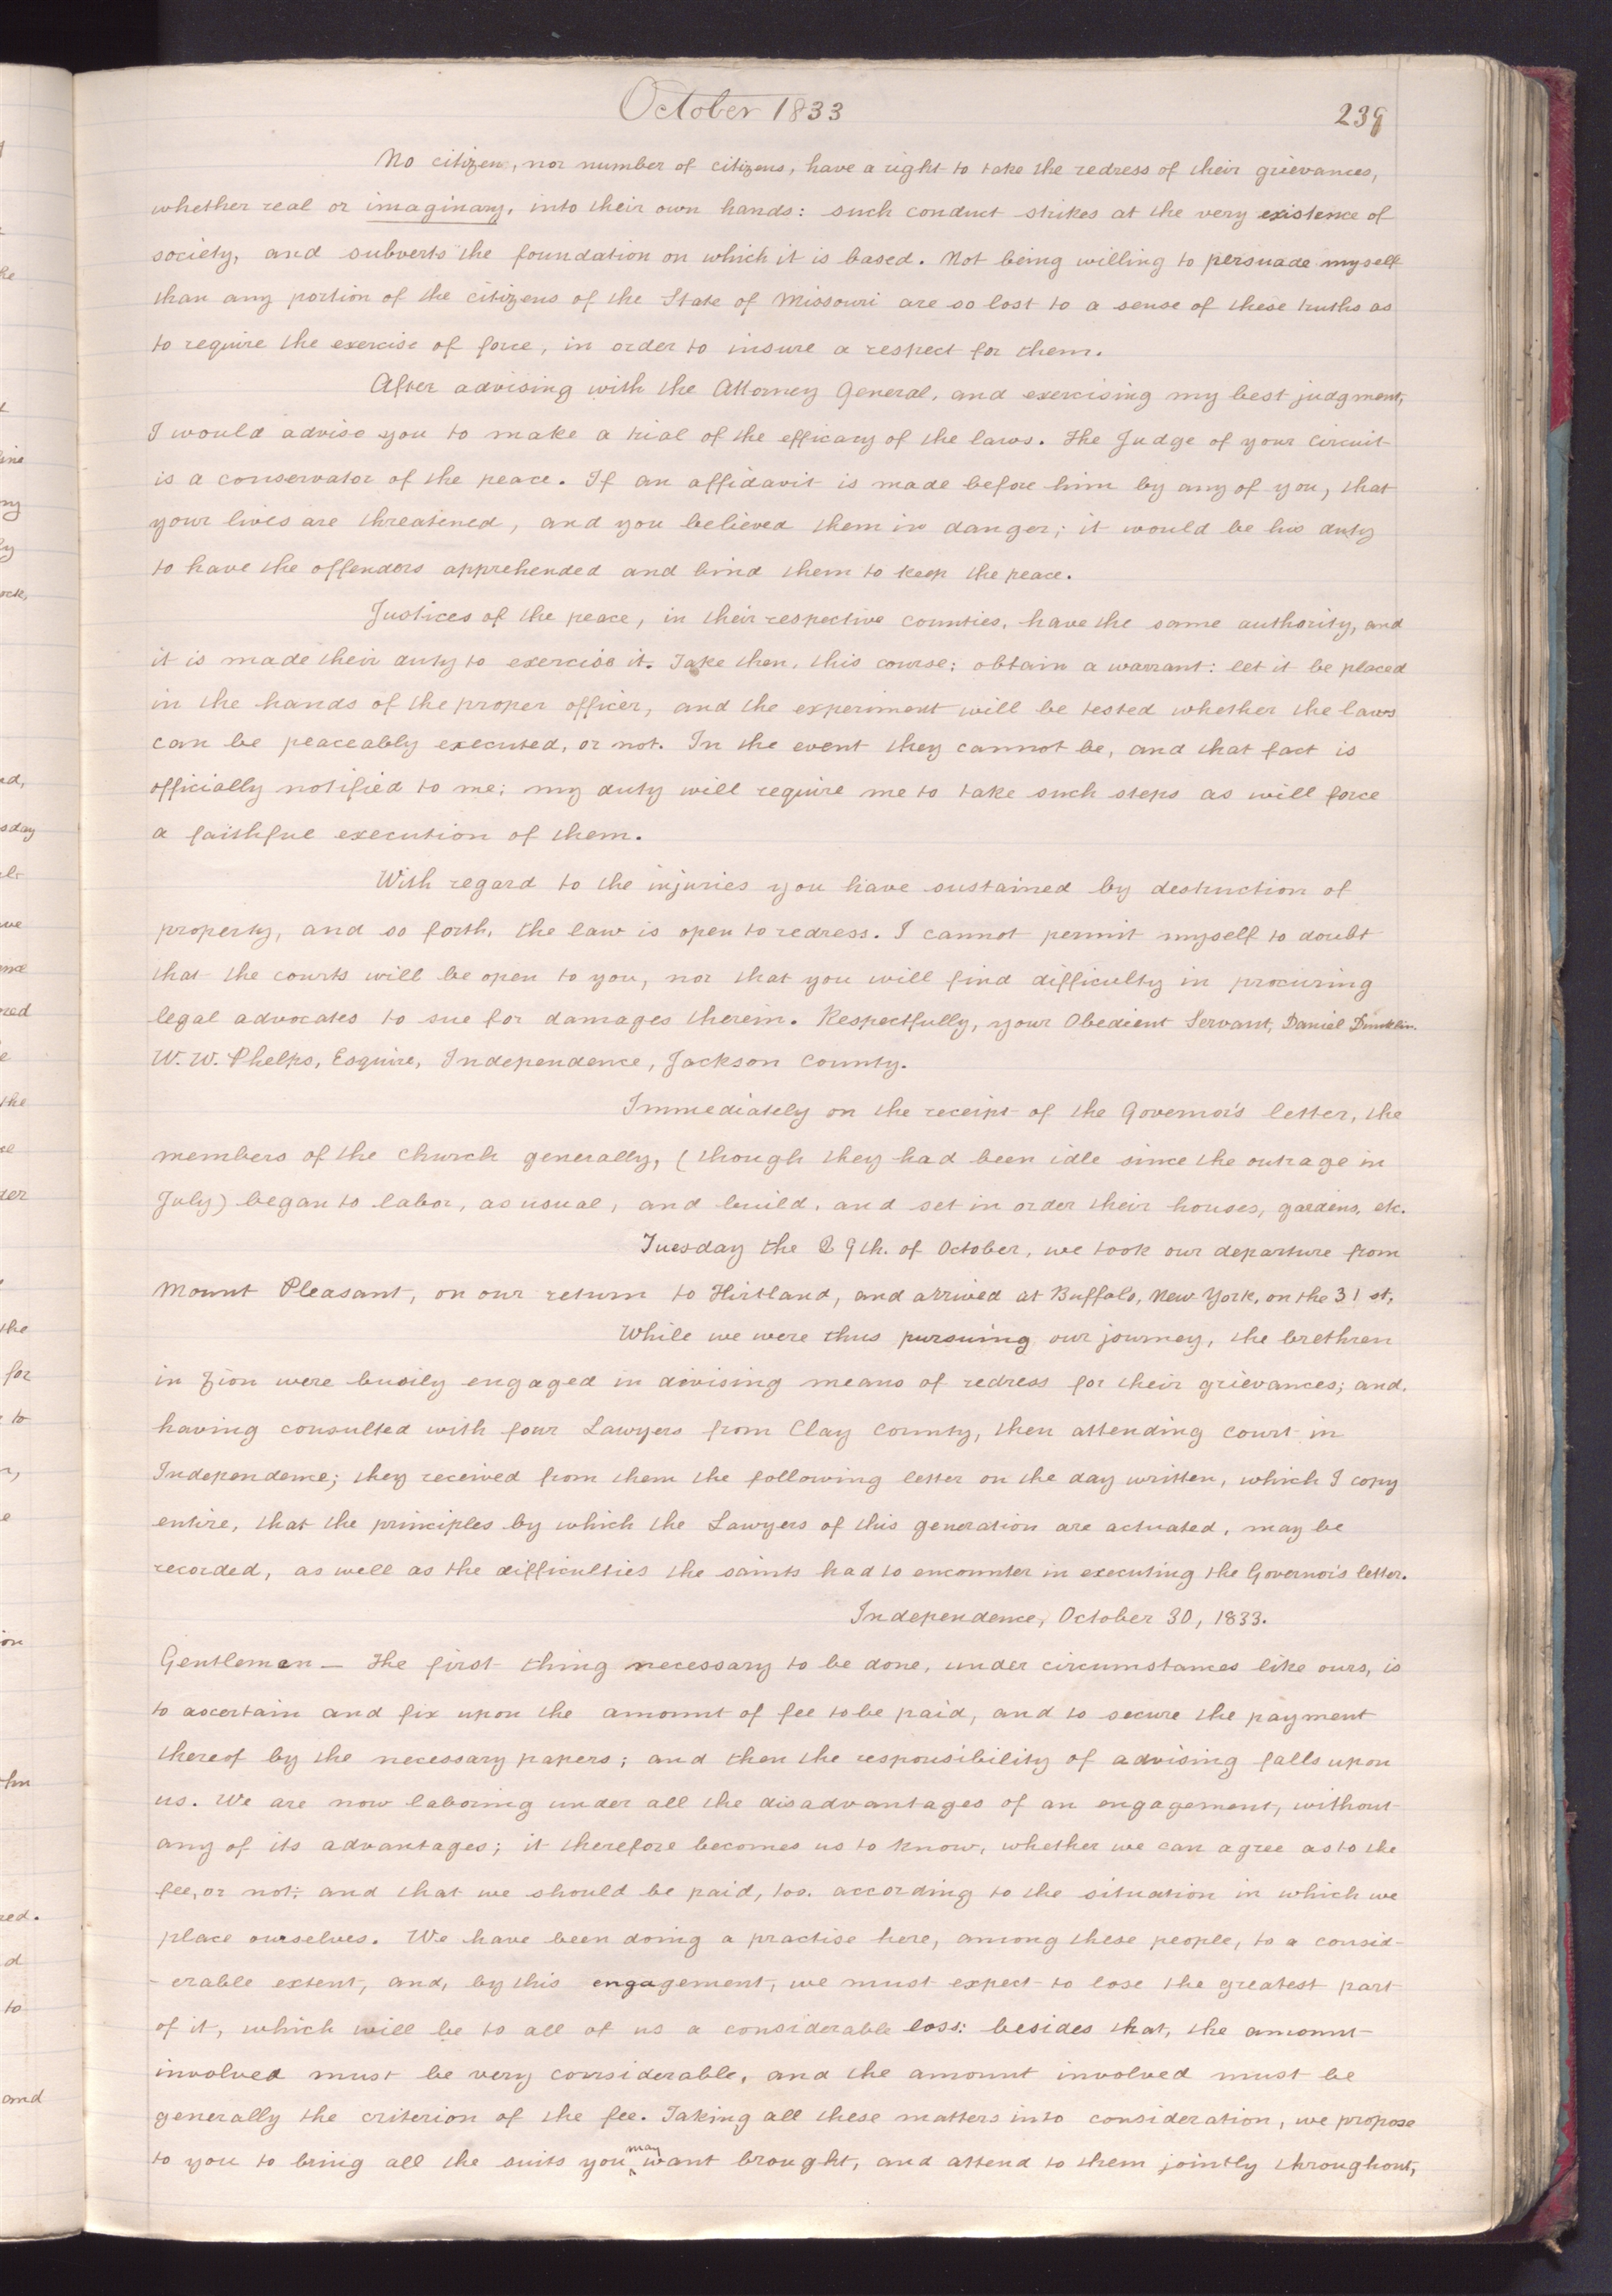 October 1833
239
No citizen, nor number of citizens, have a right to take the redress of their grievances,
whether real or imaginary, into their own hands: such conduct strikes at the very existence of
society, and subverts the foundation on which it is based. Not being willing to persuade myself
than any portion of the citizens of the State of Missouri are so lost to a sense of these truths as
to require the exercise of force, in order to insure a respect for them.
After advising with the Attorney General, and exercising my best judgment,
I would advise you to make a trial of the efficacy of the laws. The Judge of your circuit
is a conservator of the peace. If an affidavit is made before him by any of you, that
your lives are threatened, and you believed them in danger; it would be his duty
to have the offenders apprehended and bind them to keep the peace.
Justices of the peace, in their respective counties, have the same authority, and
it is made their duty to exercise it. Take then, this course: obtain a warrant: let it be placed
in the hands of the proper officer, and the experiment will be tested whether the laws
can be peaceably executed, or not. In the event they cannot be, and that fact is
officially notified to me; my duty will require me to take such steps as will force
a faithful execution of them.
With regard to the injuries you have sustained by destruction of
property, and so forth, the law is open to redress. I cannot permit myself to doubt
that the courts will be open to you, nor that you will find difficulty in procuring
legal advocates to sue for damages therein. Respectfully, your Obedient Servant, Daniel Dunklin.
W. W. Phelps, Esquire, Independence, Jackson County.
Immediately on the receipt of the Governor's letter, the
members of the church generally, (though they had been idle since the outrage in
July) began to labor, as usual, and build, and set in order their houses, gardens, etc.
Tuesday the 29th. of October, we took our departure from
Mount Pleasant, on our return to Kirtland, and arrived at Buffalo, New York, on the 31st,
While we were thus pursuing our journey, the brethren
in Zion were busily engaged in divising means of redress for their grievances; and,
having consulted with four Lawyers from Clay County, then attending court in
Independence; they received from them the following letter on the day written, which I copy
entire, that the principles by which the Lawyers of this generation are actuated, may be
recorded, as well as the difficulties the saints had to encounter in executing the Governor's letter.
Independence, October 30, 1833.
Gentlemen — The first thing necessary to be done, under circumstances like ours, is
to ascertain and fix upon the amount of fee to be paid, and to secure the payment
thereof by the necessary papers; and then the responsibility of advising falls upon
us. We are now laboring under all the disadvantages of an engagement, without
any of its advantages; it therefore becomes us to know, whether we can agree as to the
fee, or not; and that we should be paid, too. according to the situation in which we
place ourselves. We have been doing a practise here, among these people, to a consid-
-erable extent, and, by this engagement, we must expect to lose the greatest part
of it, which will be to all of us a considerable loss: besides that, the amount
involved must be very considerable, and the amount involved must be
generally the criterion of the fee. Taking all these matters into consideration, we propose
to you to bring all the suits you may want brought, and attend to them jointly throughout,